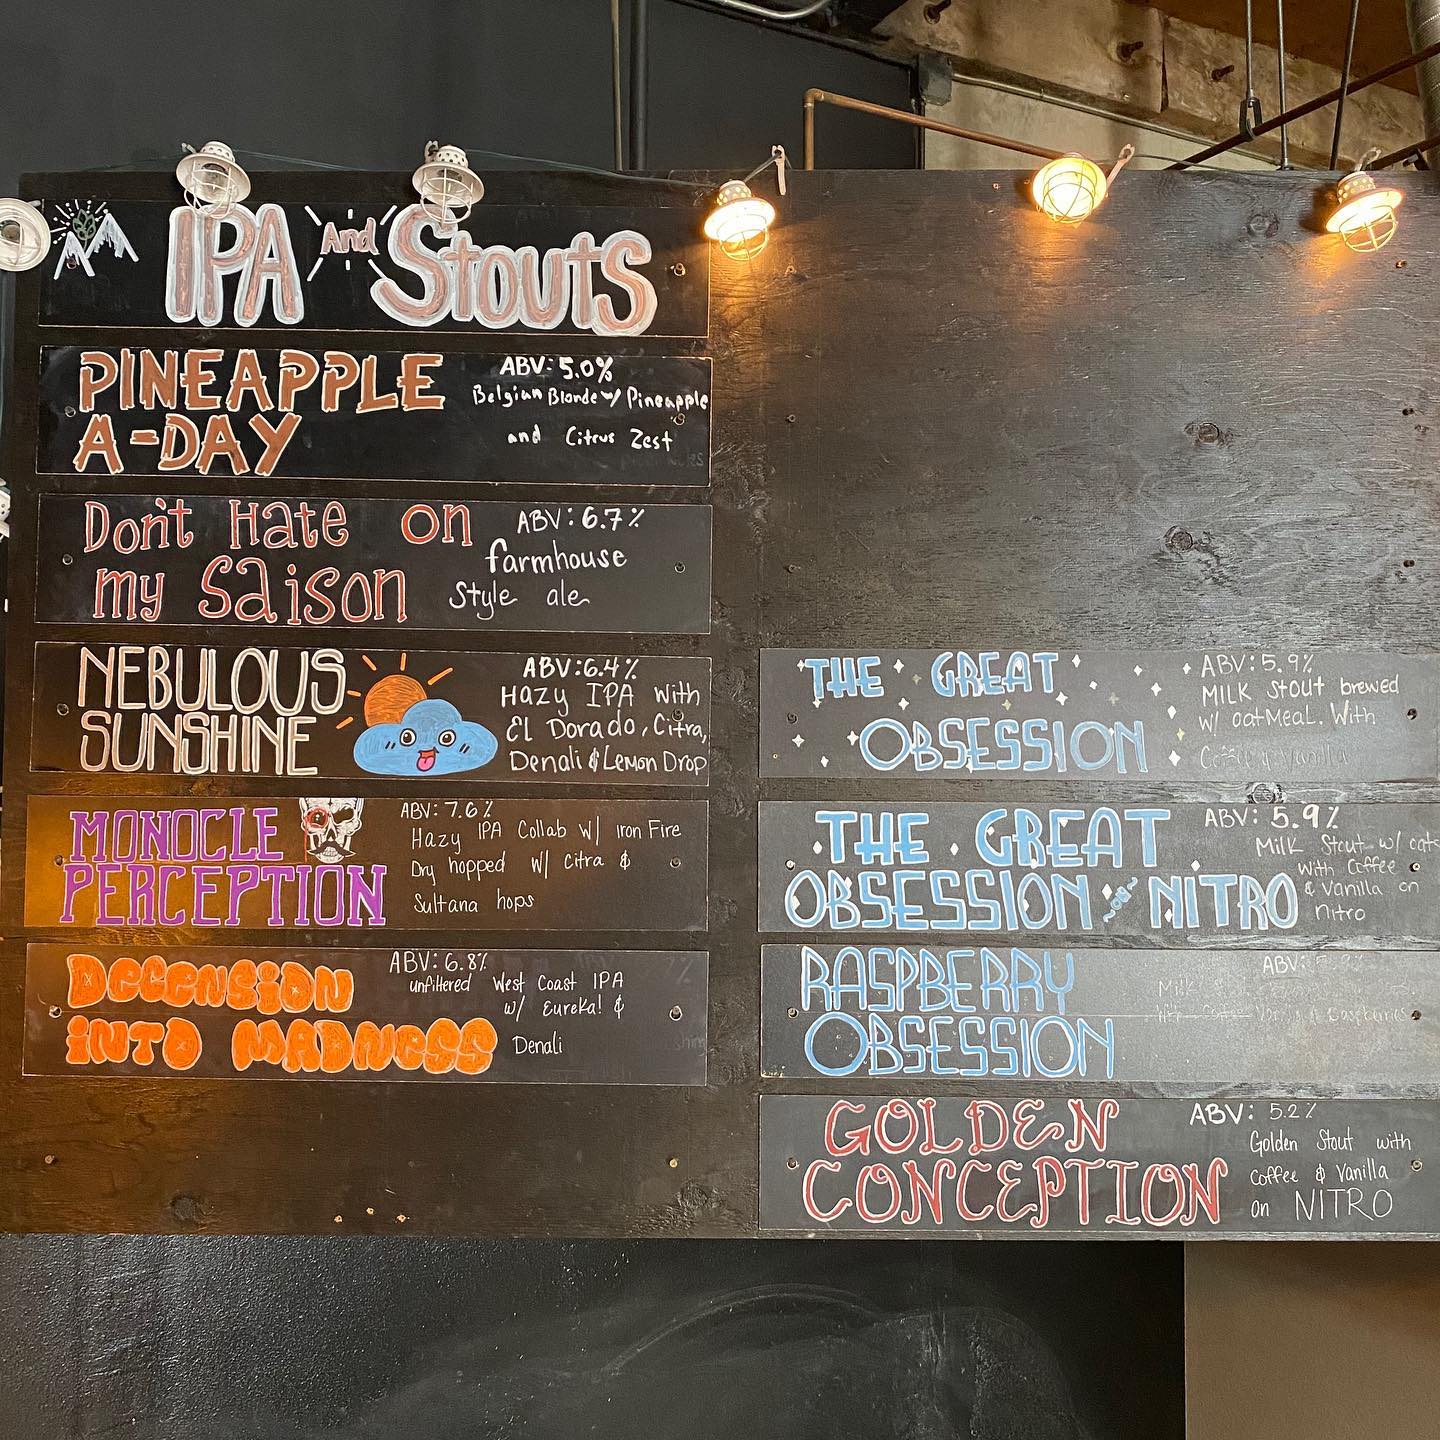 IPA And Stouts
PINEAPPLE
A-DAY
ABV: 5.0%
Belgian Blonde w/ Pineapple
and Citrus Zest
Don't Hate on
my Saison
ABV: 6.7%
farmhouse
Style ale
NEBULOUS
SUNSHINE
ABV: 6.4%
Hazy IPA with
El Dorado, Citra,
Denali & Lemon Drop
MONOCLE
PERCEPTION
ABV: 7.6%
Hazy IPA Collab w/ Iron Fire
Dry hopped w/ Citra &
Sultana hops
Decension
into MADNESS
ABV: 6.8%
unfiltered West Coast IPA
w/ Eureka! &
Denali
THE GREAT
OBSESSION
ABV: 5.9%
MILK Stout brewed
w/ oatmeal. With
Vanilla
THE GREAT
OBSESSION ~ON~ NITRO
ABV: 5.9%
Milk Stout w/ oats
with Coffee
& Vanilla on
Nitro
RASPBERRY
OBSESSION
ABV: 5.9%
Milk
With Coffee
GOLDEN
CONCEPTION
ABV: 5.2%
Golden Stout with
coffee & Vanilla
on NITRO